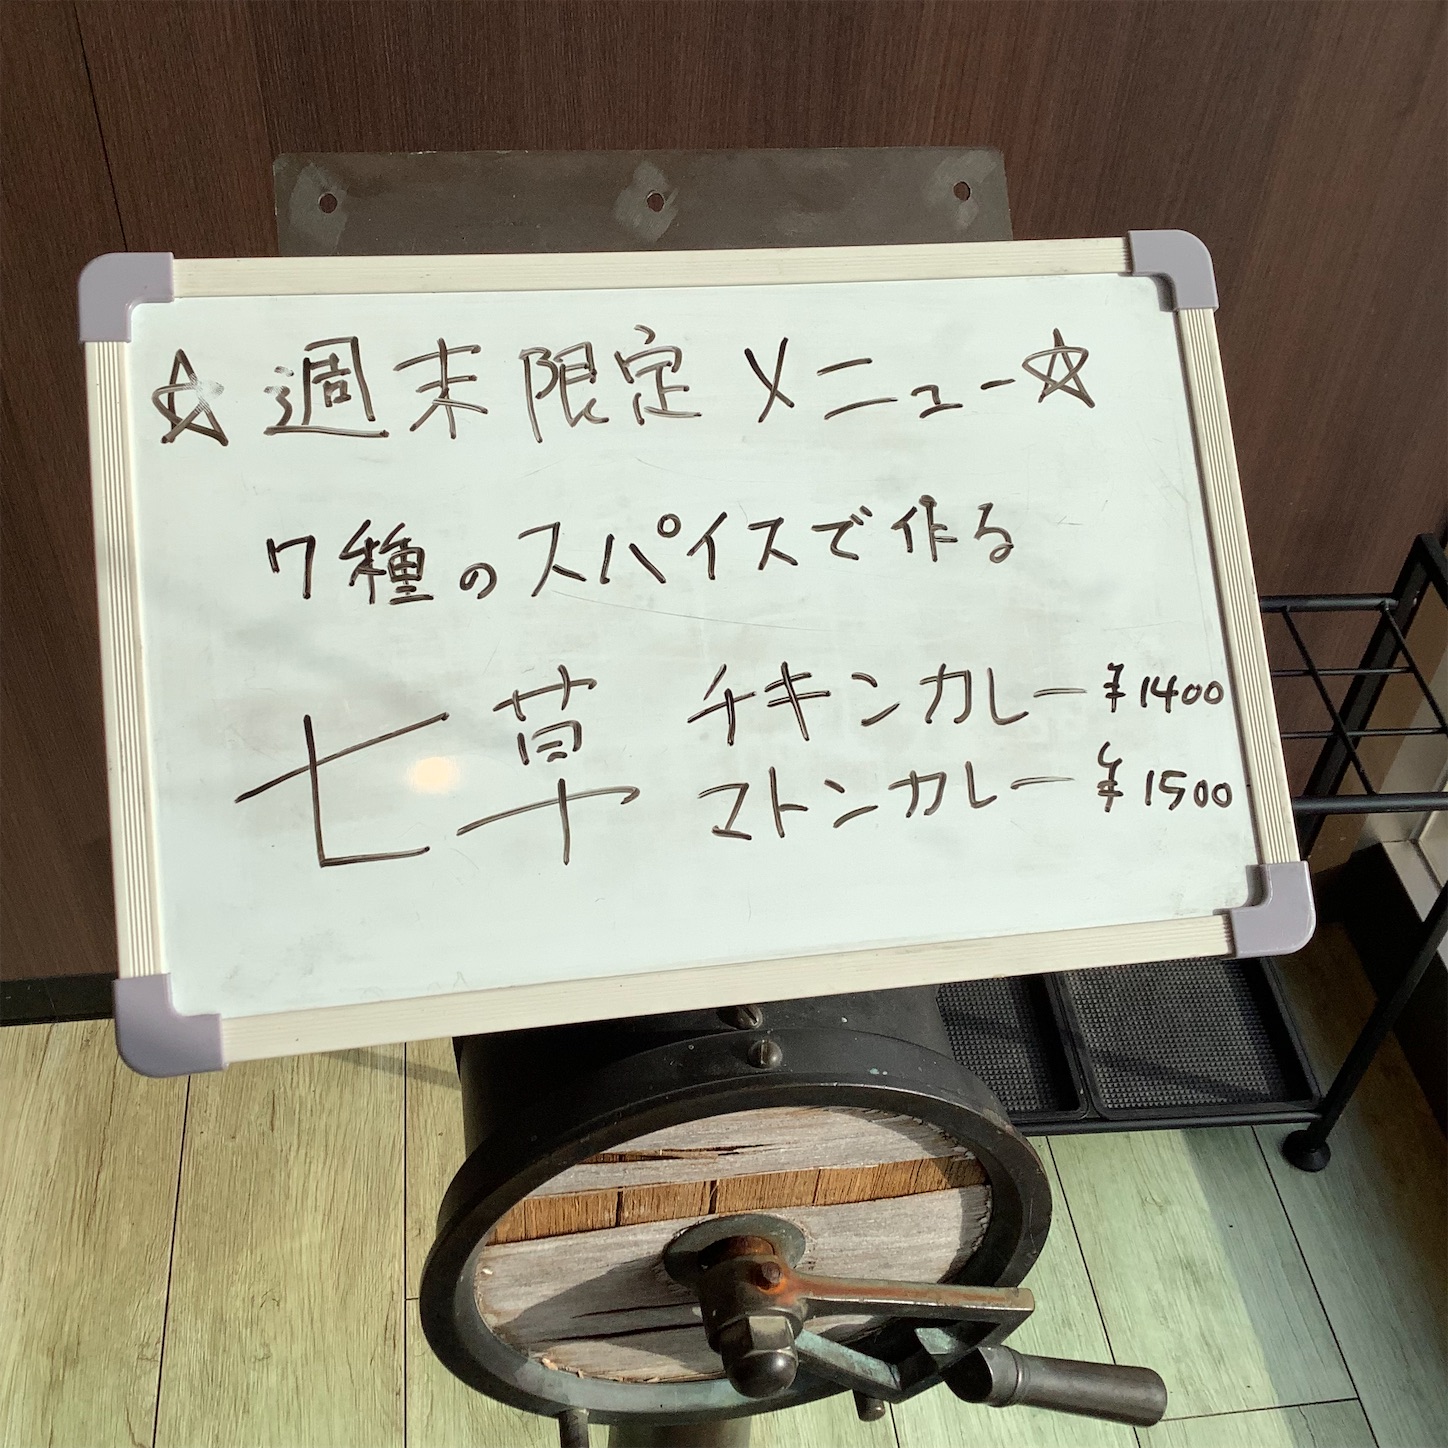 ☆週末限定メニュー☆
7種のスパイスで作る
七草 チキンカレー ¥1400
マトンカレー ¥1500